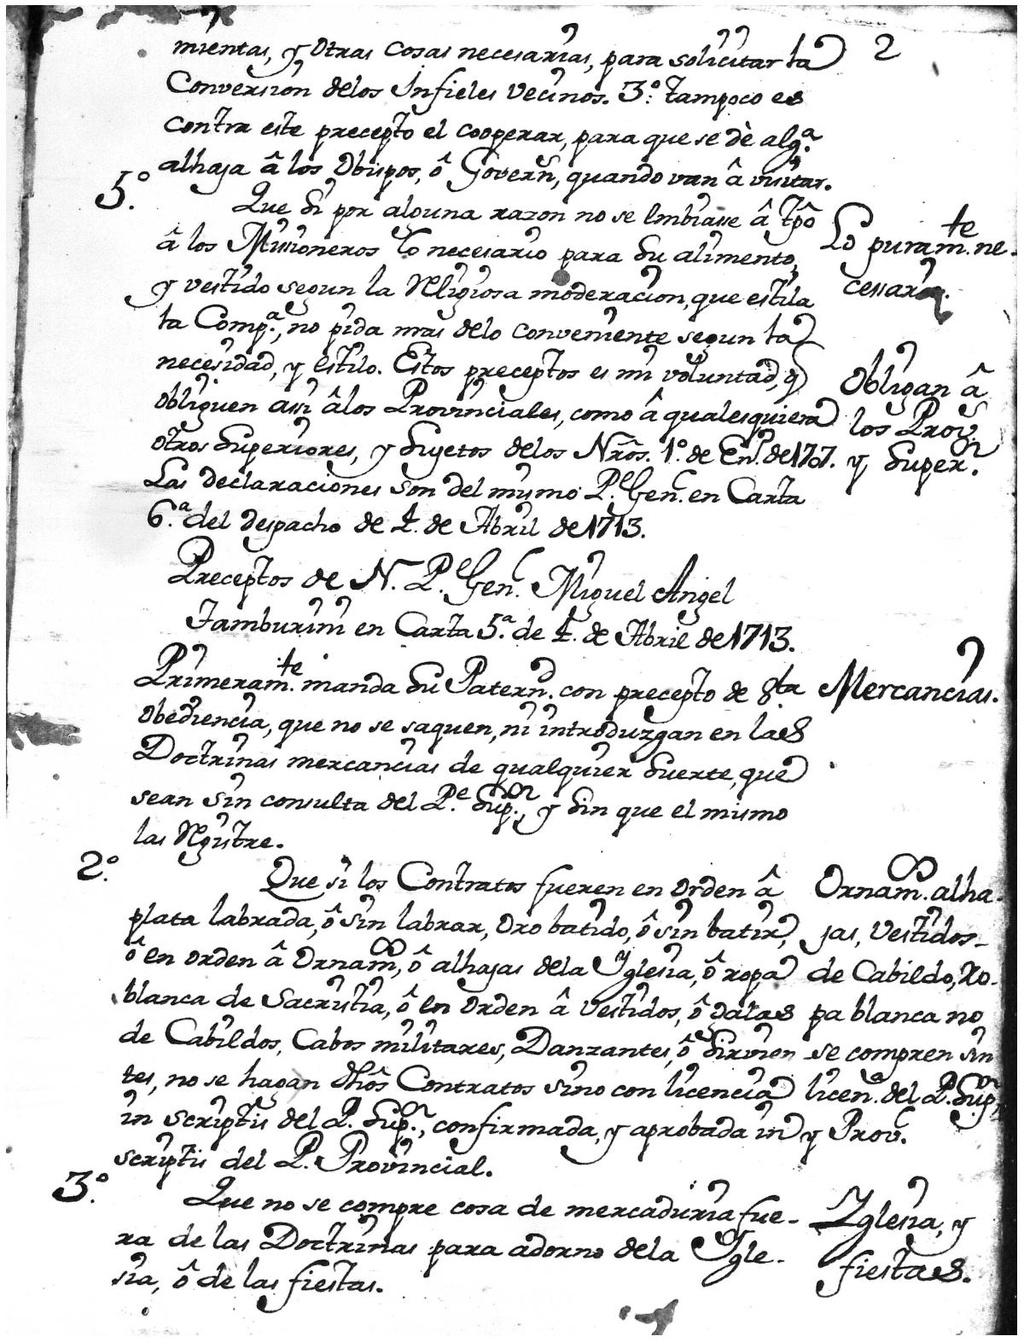 2
mientas, y otras cosas necesarias, para solicitar la
Conversion delos Infieles vecinos. 3º. tampoco es
contra este precepto el cooperar, para que se dè algª.
alhaja â los Obispos, ô Governs, quando van â visitar.
5º. Que si por alguna razon no se embiase â tpô
â los Missioneros lo necesario para su alimento,
y vestido segun la Religiosa moderacion, que estila
la Compª., no pida mas delo conveniente segun la
necesidad, y estilo. Estos preceptos es mi voluntad, q
obliguen asi âlos Provinciales, como â qualesquiera
otros Superiores, y Sujetos delos Nrôs. 1º. de Enº de 1707.
Las declaraciones son del mismo P.e Gen.l en Carta
6ª. del despacho de 4. de Abril de 1713.
Lo puram.te ne-
cessario.
Obligan â
los Prov.
y Super.
Preceptos de N. P.e Gen.l Miguel Angel
Tamburini en Carta 5ª. de 4. de Abril de 1713.
Primeram.te manda Su Patern.d con precepto de sta
obediencia, que no se saquen, ni introduzgan en las
Doctrinas mercancias de qualquier suerte, que
sean sin consulta del P.e Sup.r, y sin que el mismo
las Rgistre.
Mercancias.
2º. Que si los Contratos fueren en orden â
plata labrada, ô sin labrar, oro batido, ô sin batir,
ô en orden â Ornam.os, ô alhajas dela Yglesia, ô ropa
blanca de Sacristia, ô en orden â vestidos, ô galas
de Cabildos, Cabos militares, Danzantes, ô Sirvien
tes, no se hagan dhôs Contratos sino con licencia
in scriptis del P. Sup.r, confirmada, y aprobada in
scriptis del P. Provincial.
Ornam.os alha-
jas, Vestidos
de Cabildo, Ro-
pa blanca no
se compren sin
licenª. del P. Sup.r
y Prov.l
3º. Que no se compre cosa de mercaduria fue-
ra de las Doctrinas para adorno dela Ygle-
sia, ô de las fiestas.
Yglesia, y
fiestas.